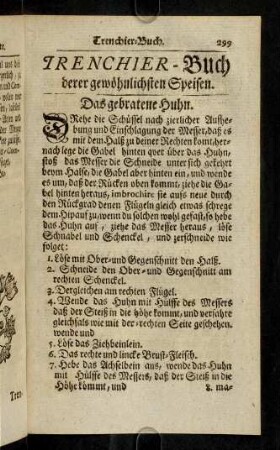 Trenchier-Buch. 299
TRENCHIER-Buch
derer gewöhnlichsten Speisen.
Das gebratene Huhn.
DRehe die Schüssel nach zierlicher Aufhe-
bung und Einschlagung der Messer, daß es
mit dem Halß zu deiner Rechten komt, her-
nach lege die Gabel hinten qver über das Huhn,
stoß das Messer die Schneide unter sich gekehrt
beym Halse, die Gabel aber hinten ein, und wende
es um, daß der Rücken oben kommt, ziehe die Ga-
bel hinten heraus, inbrochire sie aufs neue durch
den Rückgrad denen Flügeln gleich etwas schrege
dem Hipauf zu, wenn du solchen wohl gefast, so hebe
das Huhn auf, ziehe das Messer heraus, löse
Schnabel und Schenckel, und zerschneide wie
folget:
1. Löse mit Ober- und Gegenschnitt den Halß.
2. Schneide den Ober- und Gegenschnitt am
rechten Schenckel.
3. Dergleichen am rechten Flügel.
4. Wende das Huhn mit Hülffe des Messers
daß der Steiß in die Höhe kommt, und verfahre
gleichfals wie mit der rechten Seite geschehen.
wende und
5. Löse das Ziehbeinlein.
6. Das rechte und lincke Brust-Fleisch.
7. Hebe das Achselbein aus, wende das Huhn
mit Hülffe des Messers, daß der Steiß in die
Höhe kömmt, und 8. ma-